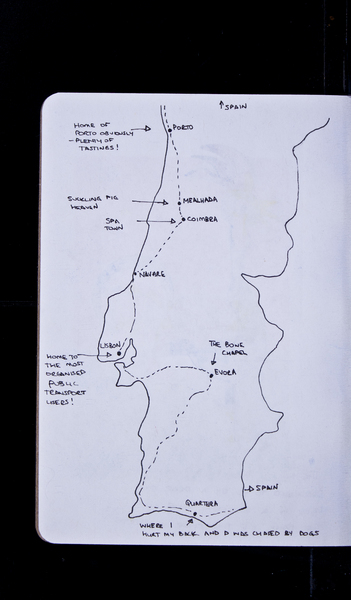 SPAIN
HOME OF
PORTO OBVIOUSLY
- PLENTY OF
TASTINGS!
PORTO
SUCKLING PIG
HEAVEN
MEALHADA
SPA
TOWN
COIMBRA
NAVARE
LISBON
HOME TO
THE MOST
ORGANISED
PUBLIC
TRANSPORT
USERS!
THE BONE
CHAPEL
EVORA
SPAIN
QUARTERA
WHERE I
HURT MY BACK AND D WAS CHASED BY DOGS